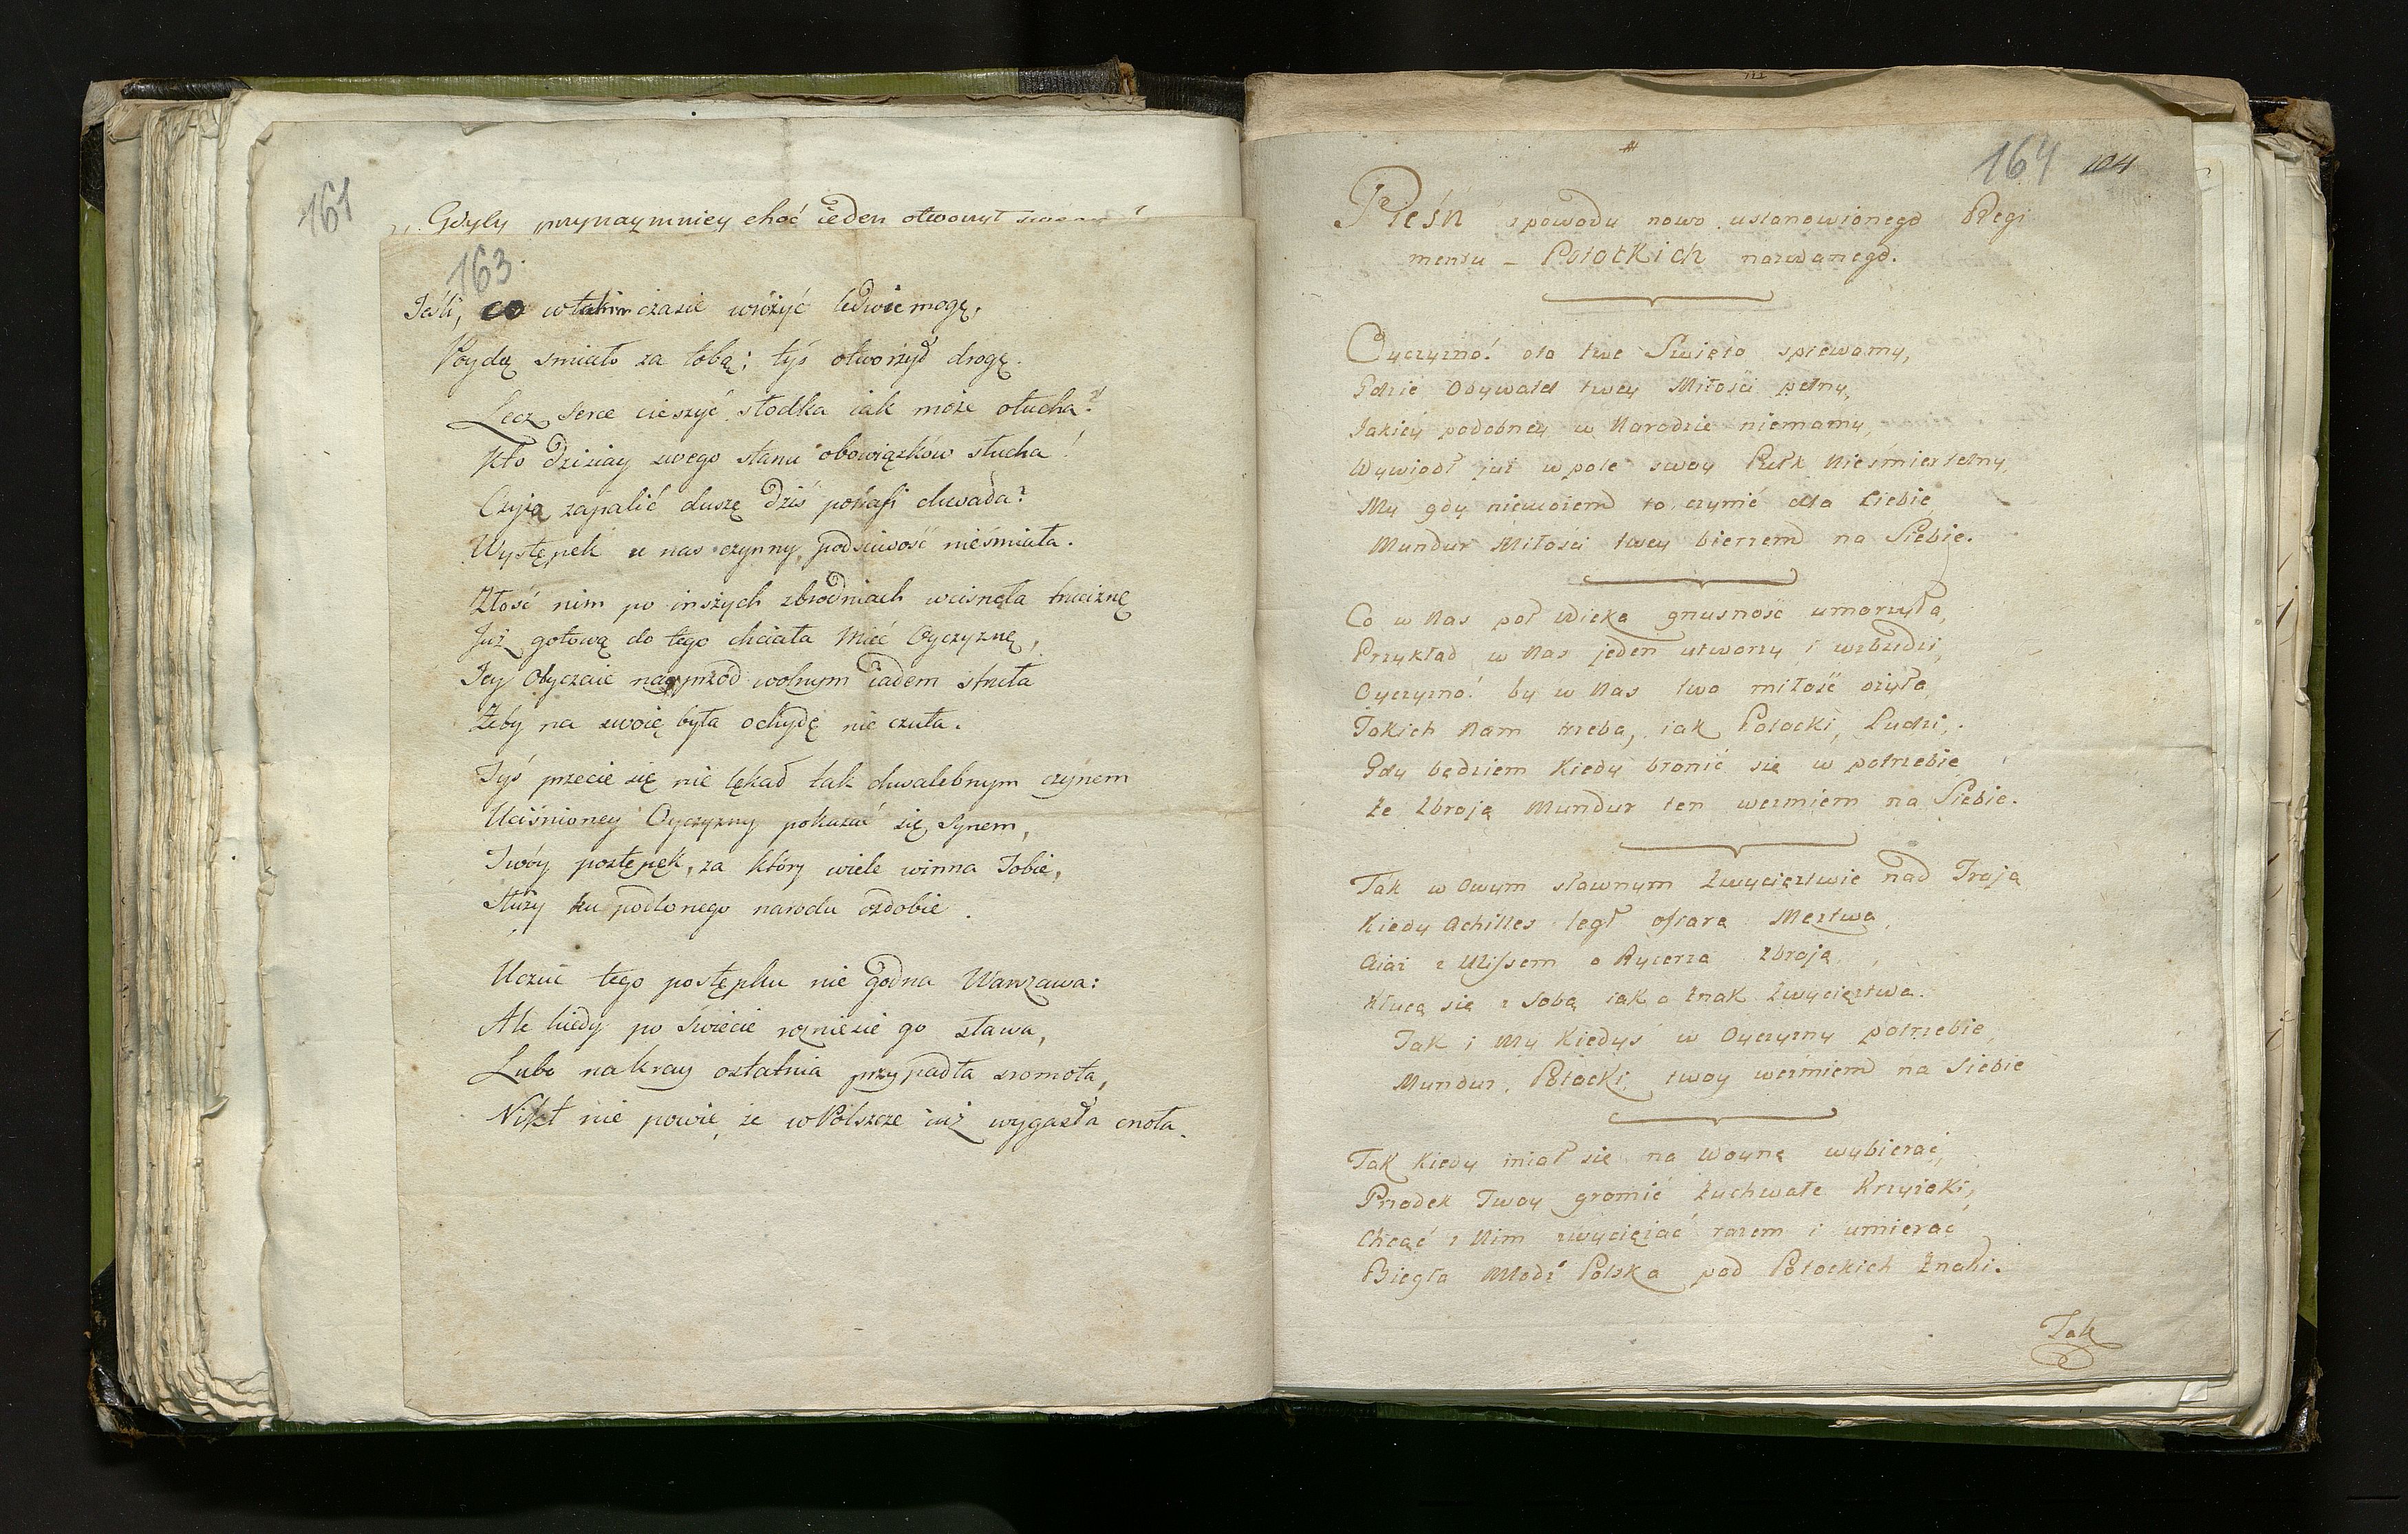 161
Gdyby przynaymniey choć ieden otworzył
163.
Jeśli, co wtakim czasie wróżyć ledwie mogę,
Poydą smiało za tobą; tyś otworzył drogę.
Lecz serce cieszyć słodka iak może otucha?
Kto dzisiay swego stanu obowiązków słucha!
Czyią zapalić duszę dziś potrafi chwała?
Występek u nas czynny, podściwość nieśmiała.
Złość nim po inszych zbrodniach wcisnęła truciznę
Już gotową do tego chciała mieć Oyczyznę,
Jey Obyczaie nayprzód wolnym iadem struła
Żeby na swoię była ochydę nie czuła.
Tyś przecie się nie lękał tak chwalebnym czynem
Uciśnioney Oyczyzny pokazać się synem,
Twóy postępek, za który wiele winna Tobie,
Służy ku podłonego narodu ozdobie.
Uczuć tego postępku nie godna Warszawa:
Ale kiedy po świecie rozniesie go sława,
Lubo na kray ostatnia przypadła sromota,
Nikt nie powie, że w Polszcze iuż wygasła cnota.
164 104
Pieśń z powodu nowo ustanowionego Regi
mentu – Potockich nazwanego.
Oyczyzno! oto twe Swięto spiewamy,
Gdzie Obywatel twey Miłości pełny,
Jakiey podobney w Narodzie niemamy,
Wywiodł już w pole swoy Pułk Nieśmiertelny,
My gdy niemożem to czynić dla Ciebie
Mundur Miłości twey bierzem na Siebie.
Co w Nas poł wieka gnusność umorzyła,
Przykład w Nas jeden utworzy i wzbudzi,
Oyczyzno! by w Nas twa miłość ożyła,
Takich Nam trzeba, iak Potocki, Ludzi,
Gdy będziem kiedy bronić się w potrzebie
Ze Zbroją Mundur ten weźmiem na Siebie.
Tak w Owym sławnym Zwycięztwie nad Troją
Kiedy Achilles legł ofiarą Męztwa,
Aiax z Ulissem o Rycerza Zbroją
Kłucą się z Sobą iak o Znak Zwycięztwa.
Tak i My kiedyś w Oyczyzny potrzebie,
Mundur, Potocki, twoy weźmiem na Siebie
Tak kiedy miał się na Woynę wybierać,
Przodek Twoy gromić Zuchwałe Krzyżaki,
Chcąć z Nim zwyciężać razem i umierać
Biegła Młodź Polska pod Potockich Znaki.
Tak